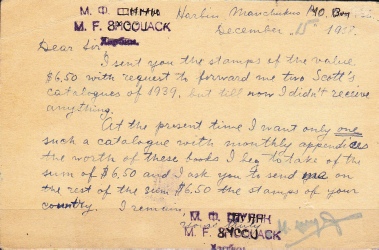 М. Ф.
M. F.
Харбин.
Harbin Manchukuo P.O. Box
December 15 193
Dear Sir
I sent you the stamps of the value
$6.50 with request to forward me two Scott's
catalogues of 1939, but till now I didn't receive
anything.
At the present time I want only one
such a catalogue with monthly appendices
the worth of these books I beg to take of the
sum of $6.50 and I ask you to send me on
the rest of the sum $6.50 the stamps of your
country. I remain
Yours truly
М. Ф.
M. F.
Харбин